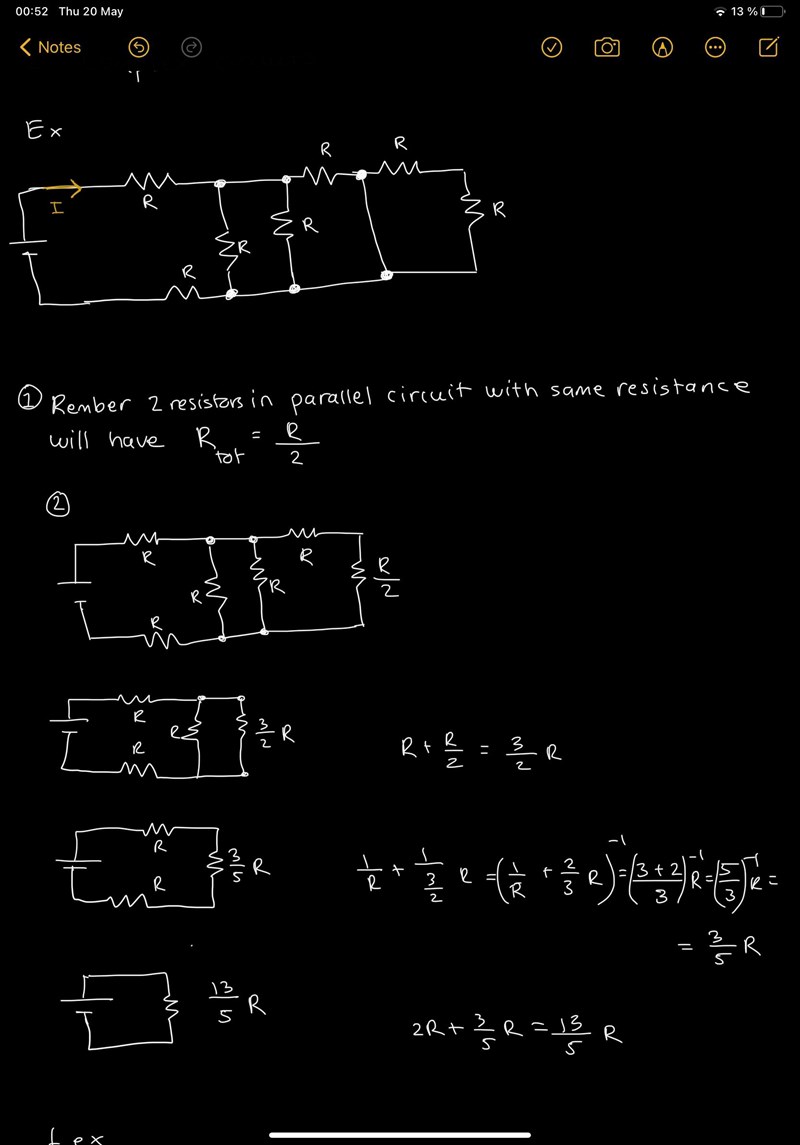 00:52 Thu 20 May
13 %
Notes
Ex
R
R
I
R
R
R
R
R
① Rember 2 resistors in parallel circuit with same resistance
will have R_tot = R/2
②
R
R
R/2
R
R
R
R
R
3/2 R
R
R + R/2 = 3/2 R
R
3/5 R
R
1/R + 1/(3/2) R = (1/R + 2/3 R)^-1 = ((3+2)/3)^-1 R = (5/3)^-1 R =
= 3/5 R
13/5 R
2R + 3/5 R = 13/5 R